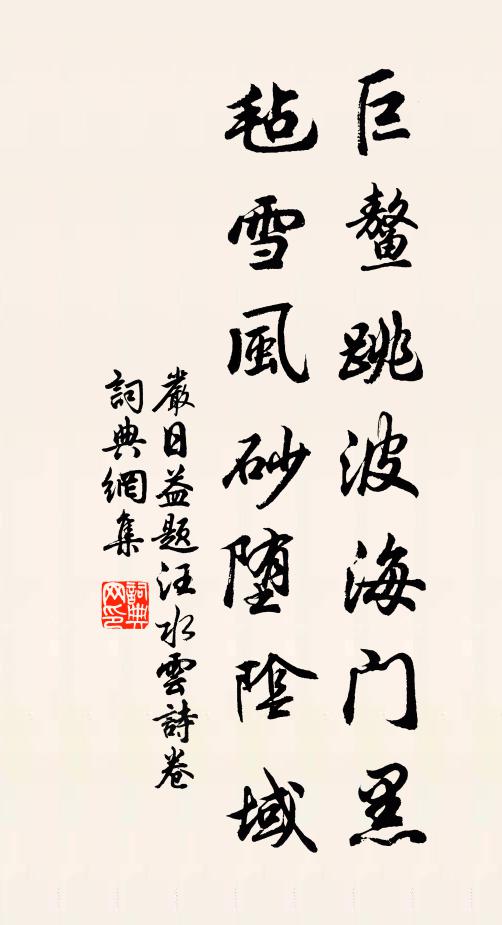 巨鳌跳波海门黑
毡雪風砂堕陰域
嚴日益題汪水雲詩卷
詞典網集
詞典网印